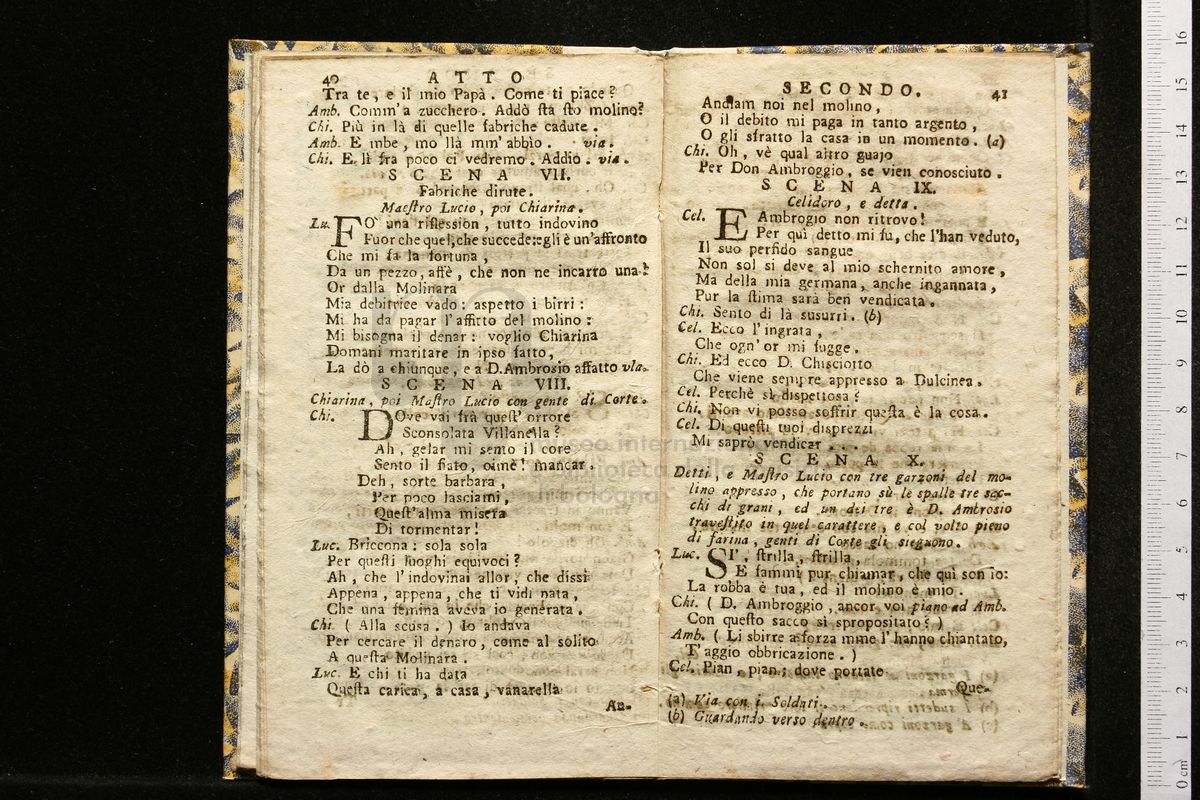 40 ATTO
Tra te, e il mio Papà. Come ti piace?
Amb. Comm'a zucchero. Addò sta sto molino?
Chi. Più in là di quelle fabriche cadute.
Amb. E mbe, mo llà mm'abbio. via.
Chi. E lì fra poco ci vedremo. Addio. via.
SCENA VII.
Fabriche dirute.
Maestro Lucio, poi Chiarina.
Lu. FO' una riflession, tutto indovino
Fuor che quel, che succede: egli è un'affronto
Che mi fa la fortuna,
Da un pezzo, affè, che non ne incarro una!
Or dalla Molinara
Mia debitrice vado: aspetto i birri:
Mi ha da pagar l'affitto del molino:
Mi bisogna il denar: voglio Chiarina
Domani maritare in ipso fatto,
La dò a chiunque, e a D. Ambrosio affatto via.
SCENA VIII.
Chiarina, poi Mastro Lucio con gente di Corte.
Chi. DOve vai frà quest'orrore
Sconsolata Villanella?
Ah, gelar mi sento il core
Sento il fiato, oimè! mancar.
Deh, sorte barbara,
Per poco lasciami,
Quest'alma misera
Di tormentar!
Luc. Briccona: sola sola
Per questi luoghi equivoci?
Ah, che l'indovinai allor, che dissi
Appena, appena, che ti vidi nata,
Che una femina aveva io generata.
Chi. (Alla scusa.) Io andava
Per cercare il denaro, come al solito
A questa Molinara.
Luc. E chi ti ha data
Questa carica, a casa, vanarella
An-
SECONDO. 41
Andiam noi nel molino,
O il debito mi paga in tanto argento,
O gli sfratto la casa in un momento. (a)
Chi. Oh, vè qual altro guajo
Per Don Ambroggio, se vien conosciuto.
SCENA IX.
Celidoro, e detta.
Cel. E Ambrogio non ritrovo!
E Per quì detto mi fu, che l'han veduto,
Il suo perfido sangue
Non sol si deve al mio schernito amore,
Ma della mia germana, anche ingannata,
Pur la stima sarà ben vendicata.
Chi. Sento di là susurri. (b)
Cel. Ecco l'ingrata,
Che ogn'or mi fugge.
Chi. Ed ecco D. Chisciotto
Che viene sempre appresso a Dulcinea.
Cel. Perchè sì dispettosa?
Chi. Non vi posso soffrir questa è la cosa.
Cel. Di questi tuoi disprezzi
Mi saprò vendicar ....
SCENA X.
Detti, e Mastro Lucio con tre garzoni del mo-
lino appresso, che portano sù le spalle tre sac-
chi di grani, ed un dei tre è D. Ambrosio
travestito in quel carattere, e col volto pieno
di farina, genti di Corte gli sieguono.
Luc. SI', strilla, strilla,
E fammi pur chiamar, che quì son io:
La robba è tua, ed il molino è mio.
Chi. (D. Ambroggio, ancor voi piano ad Amb.
Con questo sacco sì spropositato?)
Amb. (Li sbirre a forza mme l'hanno chiantato,
T'aggio obbricazione.)
Cel. Pian, pian; dove portate
Que-
(a) Via con i Soldati.
(b) Guardando verso dentro.